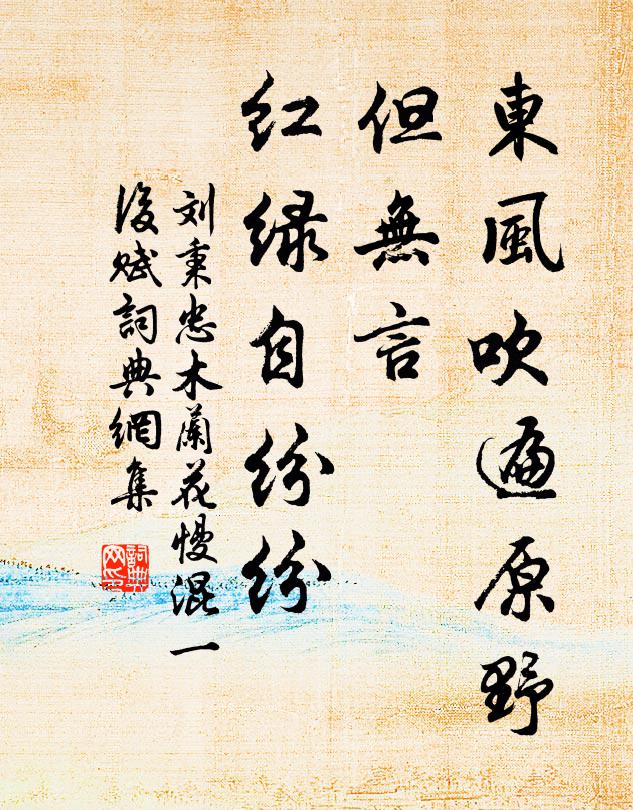 東風吹遍原野
但無言
紅綠自紛紛
刘秉忠木蘭花慢混一
後賦詞典網集
詞典
网印